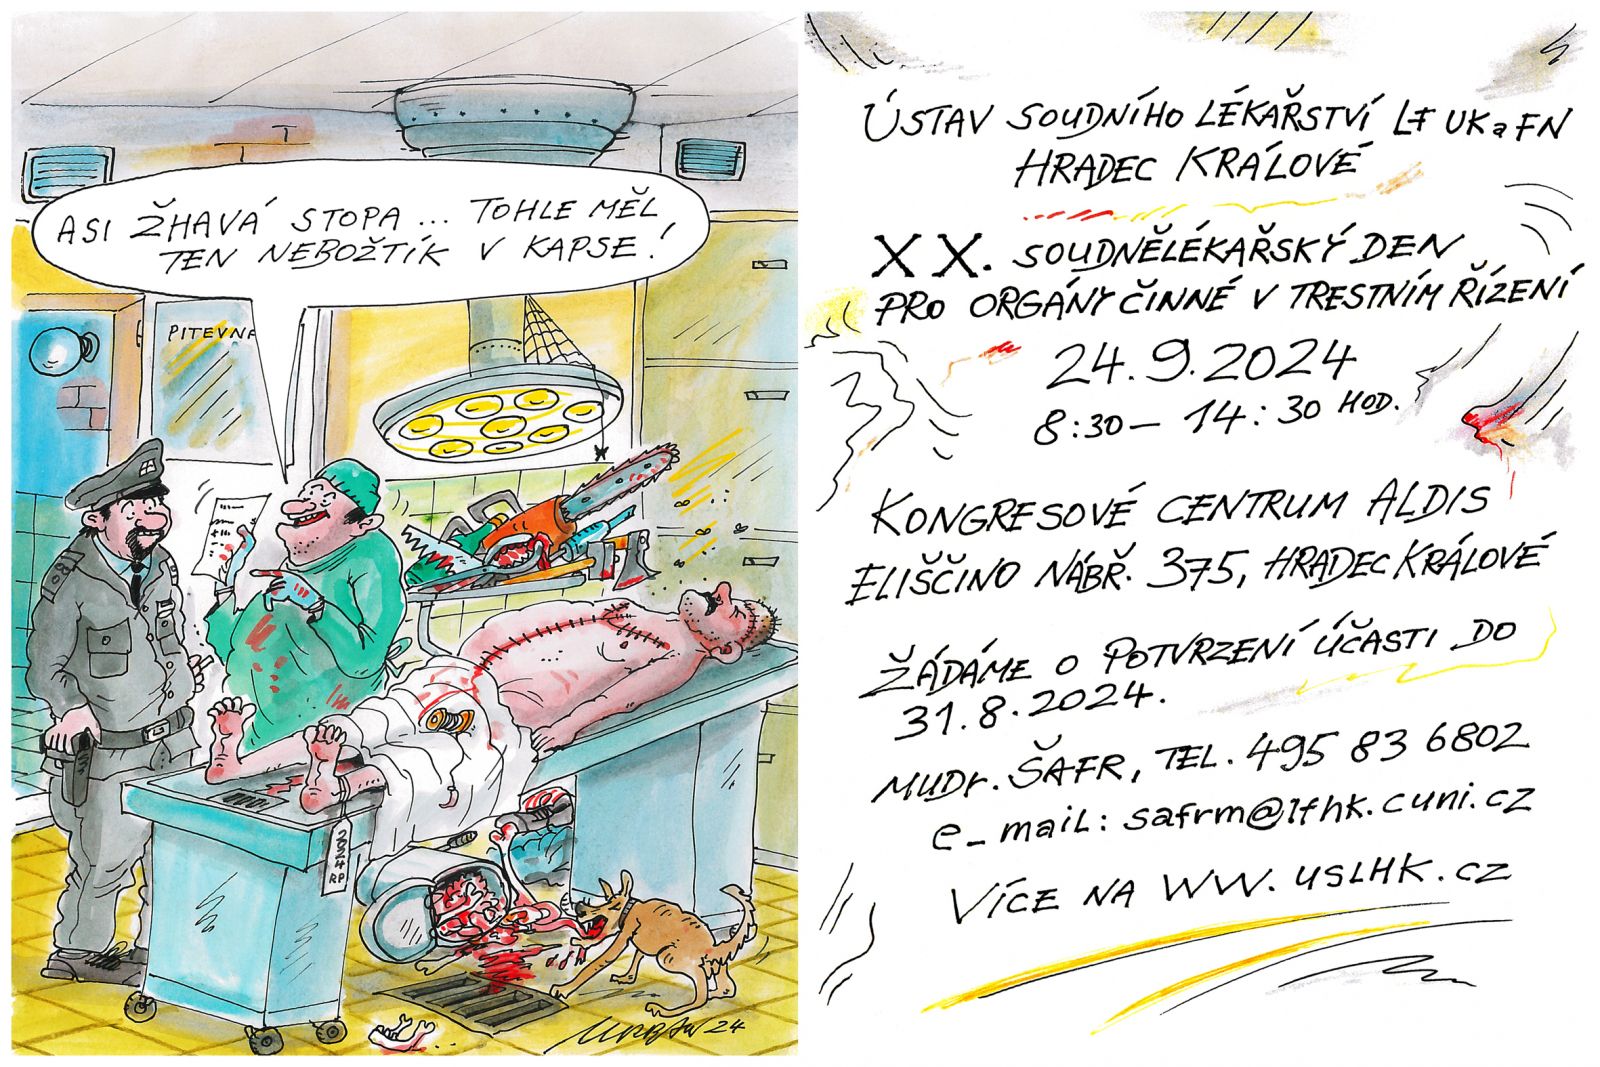 ASI ŽHAVÁ STOPA ... TOHLE MĚL
TEN NEBOŽTÍK V KAPSE!
PITEVNA
2024
RP
URBAN 24
ÚSTAV SOUDNÍHO LÉKAŘSTVÍ LF UK a FN
HRADEC KRÁLOVÉ
XX. SOUDNĚLÉKAŘSKÝ DEN
PRO ORGÁNY ČINNÉ V TRESTNÍM ŘÍZENÍ
24.9.2024
8:30 – 14:30 HOD.
KONGRESOVÉ CENTRUM ALDIS
ELIŠČINO NÁBŘ. 375, HRADEC KRÁLOVÉ
ŽÁDÁME O POTVRZENÍ ÚČASTI DO
31.8.2024.
MUDr. ŠAFR, TEL. 495 83 6802
e-mail: safrm@lfhk.cuni.cz
VÍCE NA WW.USLHK.CZ